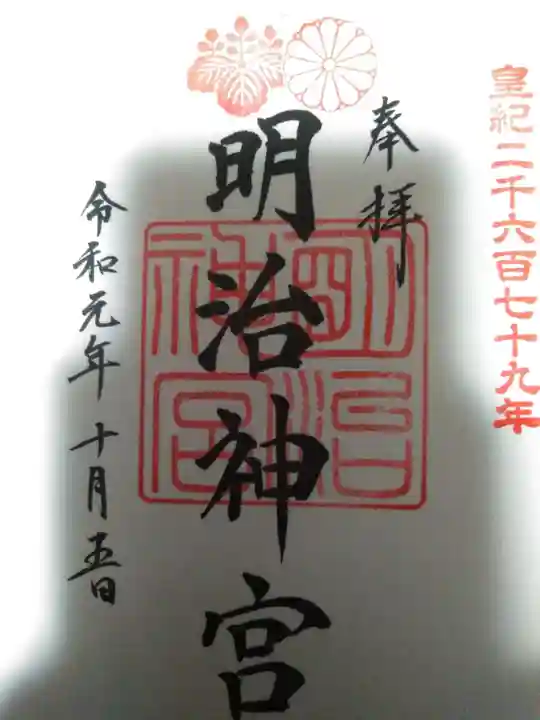 皇紀二千六百七十九年
奉拝
明治神宮
明治神宮
令和元年十月五日